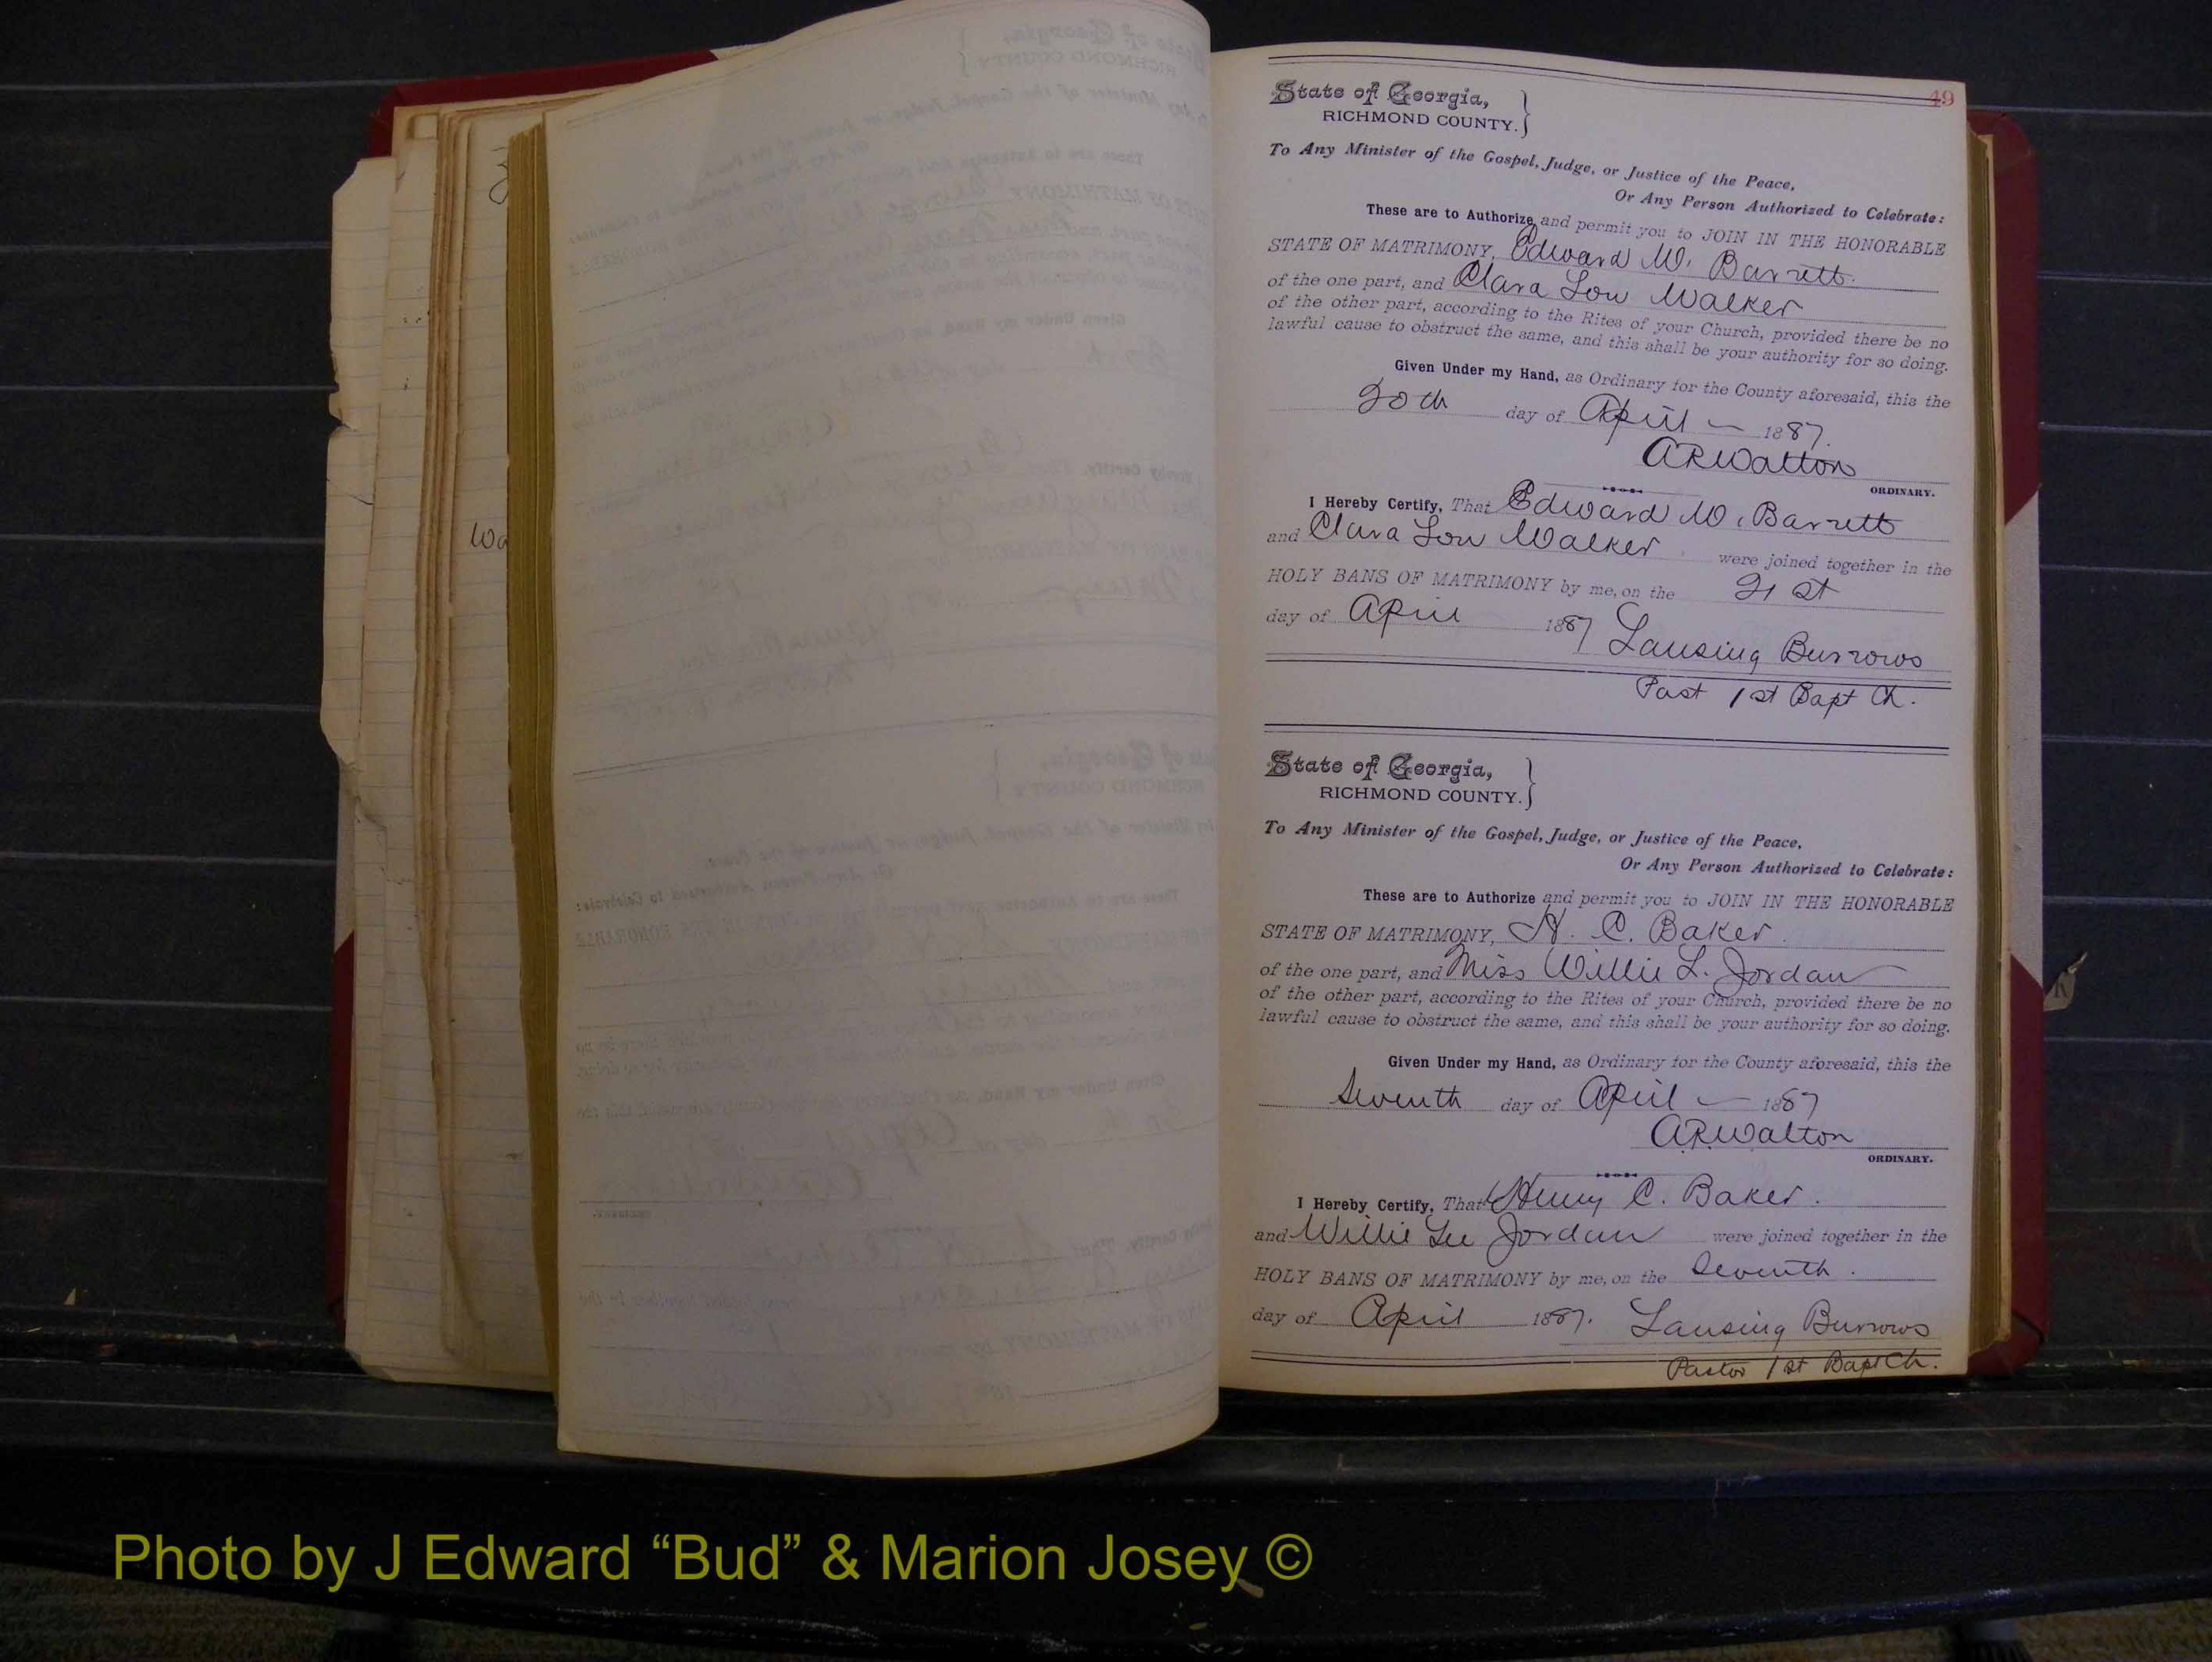 49
State of Georgia,
RICHMOND COUNTY.
To Any Minister of the Gospel, Judge, or Justice of the Peace,
Or Any Person Authorized to Celebrate:
These are to Authorize and permit you to JOIN IN THE HONORABLE
STATE OF MATRIMONY, Edward W. Barrett
of the one part, and Clara Lou Walker
of the other part, according to the Rites of your Church, provided there be no
lawful cause to obstruct the same, and this shall be your authority for so doing.
Given Under my Hand, as Ordinary for the County aforesaid, this the
20th day of April 1887.
A R Walton
ORDINARY.
I Hereby Certify, That Edward W. Barrett
and Clara Lou Walker were joined together in the
HOLY BANS OF MATRIMONY by me, on the 21st
day of April 1887 Lansing Burrows
Past 1st Bapt Ch.
State of Georgia,
RICHMOND COUNTY.
To Any Minister of the Gospel, Judge, or Justice of the Peace,
Or Any Person Authorized to Celebrate:
These are to Authorize and permit you to JOIN IN THE HONORABLE
STATE OF MATRIMONY, H. C. Baker
of the one part, and Miss Willie L. Jordan
of the other part, according to the Rites of your Church, provided there be no
lawful cause to obstruct the same, and this shall be your authority for so doing.
Given Under my Hand, as Ordinary for the County aforesaid, this the
Seventh day of April 1887
A.R. Walton
ORDINARY.
I Hereby Certify, That Henry C. Baker.
and Willie Lee Jordan were joined together in the
HOLY BANS OF MATRIMONY by me, on the Seventh.
day of April 1887. Lansing Burrows
Pastor 1st Bapt Ch.
Photo by J Edward “Bud” & Marion Josey ©